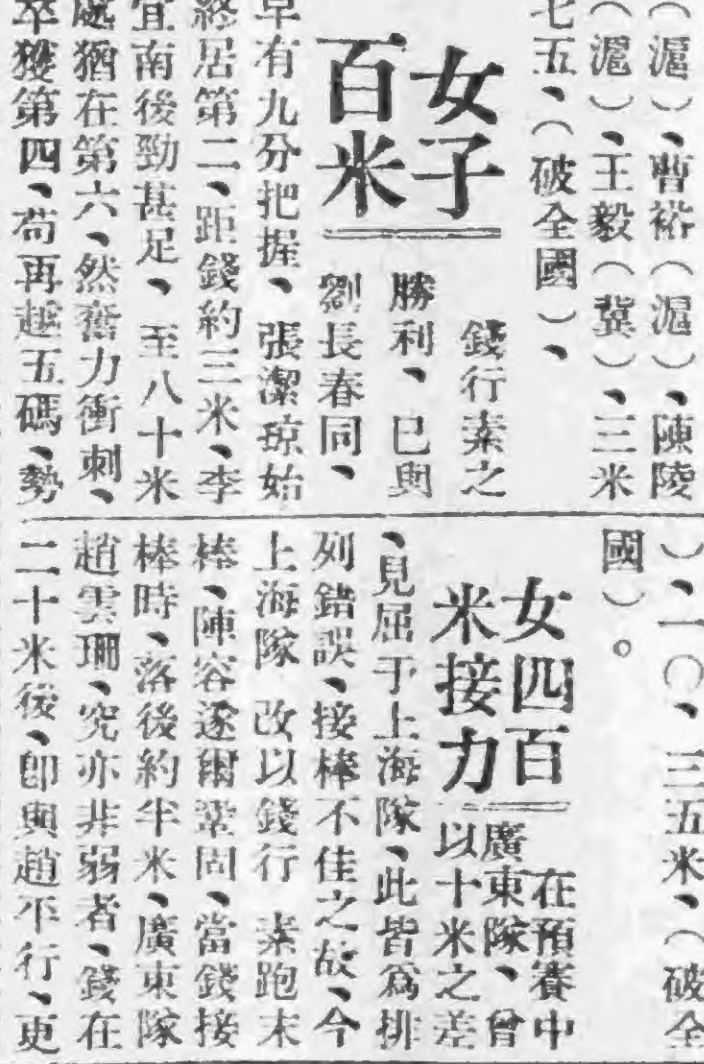 （滬）、曹裕（滬）、陳陵
（滬）、王毅（冀）、三米
七五、（破全國）、
女子
百米
錢行素之
勝利、已與
劉長春同、
早有九分把握、張潔琼始
終居第二、距錢約三米、李
宜南後勁甚足、至八十米
處猶在第六、然奮力衝刺、
卒獲第四、苟再越五碼、勢
）、一〇、三五米、（破全
國）。
女四百
米接力
在預賽中
廣東隊、曾
以十米之差
、見屈于上海隊、此皆爲排
列錯誤、接棒不佳之故、今
上海隊 改以錢行 素跑末
棒、陣容遂爾鞏固、當錢接
棒時、落後約半米、廣東隊
趙雲珊、究亦非弱者、錢在
二十米後、卽與趙平行、更